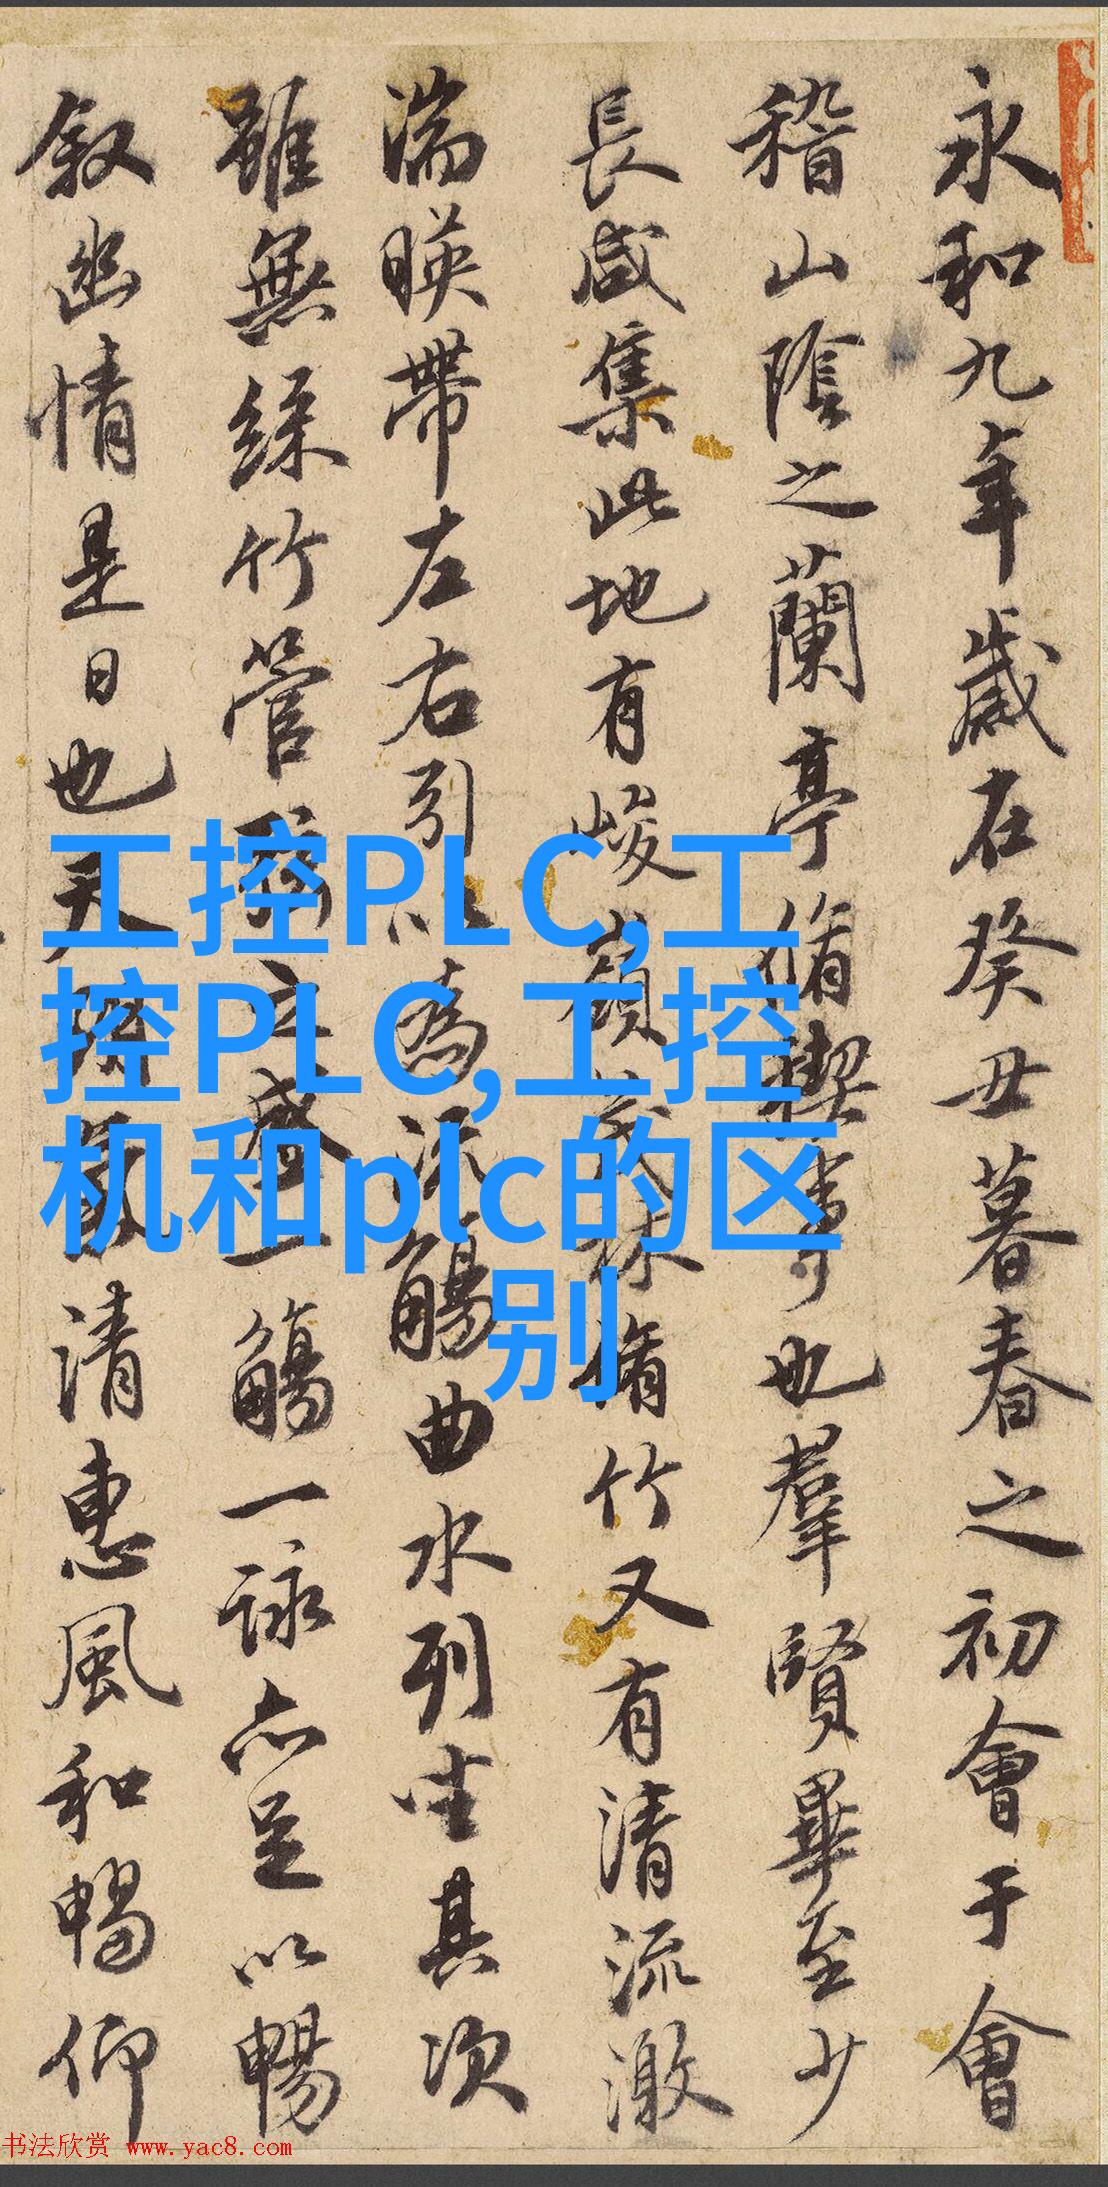 永和九年歲在癸丑暮春之初會于會
稽山陰之蘭亭脩禊事也羣賢畢至少
長咸集此地有峻嶺茂林脩竹又有清流激
湍暎帶左右引以為流觴曲水列坐其次
雖無絲竹管絃之盛一觴一詠亦足以暢
叙幽情是日也天朗氣清惠風和暢仰
工控PLC,工
控PLC,工控
机和plc的区
别
书法欣赏 www.yac8.com